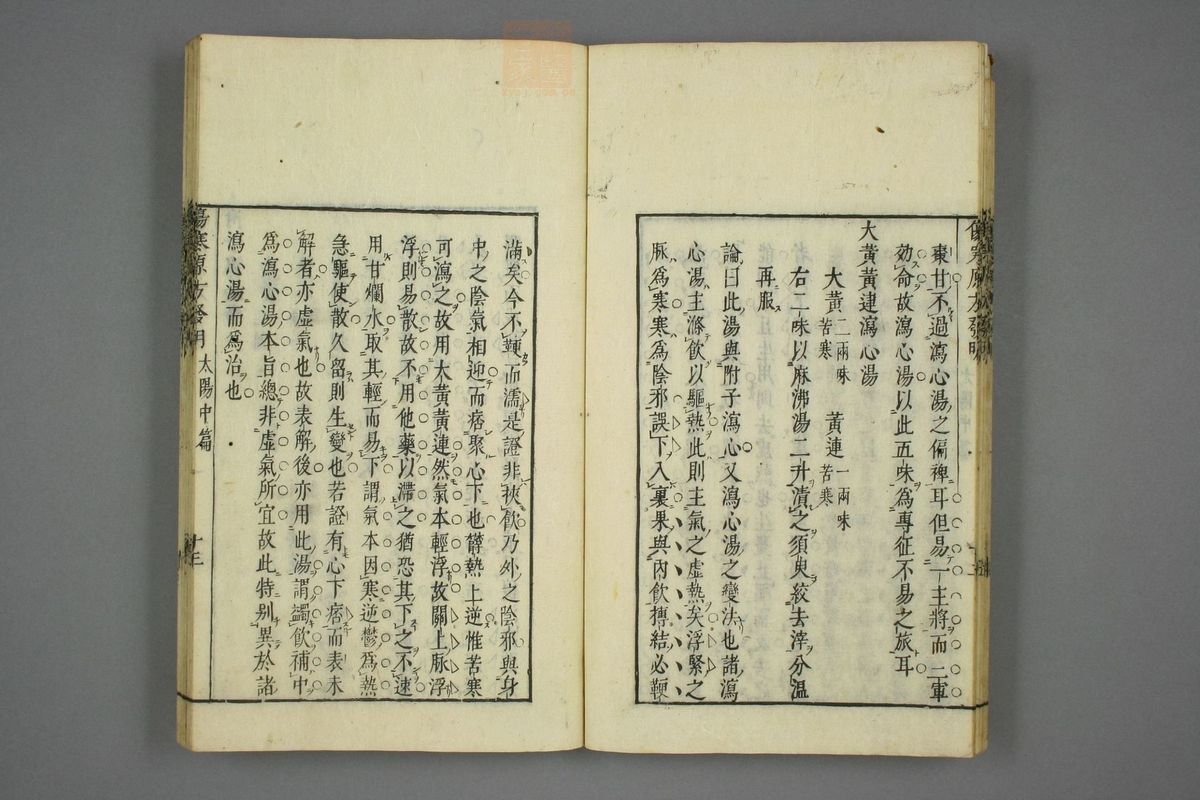 棗甘不過瀉心湯之偏裨耳但易一主將而二軍
効命故瀉心湯以此五味爲專征不易之旅耳
大黃黃連瀉心湯
大黃二兩味苦寒 黃連一兩味苦寒
右二味以麻沸湯二升漬之須臾絞去滓分温
再服
論曰此湯與附子瀉心又瀉心湯之變法也諸瀉
心湯主滌飲以驅熱此則主氣之虛熱矣浮緊之
脉爲寒寒爲陰邪誤下入裏果與內飲搏結必鞕
滿矣今不鞕而濡是證非挾飲乃外之陰邪與身
中之陰氣相迎而痞聚心下也欝熱上逆惟苦寒
可瀉之故用大黃黃連然氣本輕浮故關上脉浮
浮則易散故不用他藥以滯之猶恐其下之不速
用甘爛水取其輕而易下謂氣本因寒逆鬱爲熱
急驅使散久留則生變也若證有心下痞而表未
解者亦虛氣也故表解後亦用此湯謂蠲飲補中
爲瀉心湯本旨總非虛氣所宜故此特别異於諸
瀉心湯而爲治也
傷寒原方發明 太陽中篇 十三